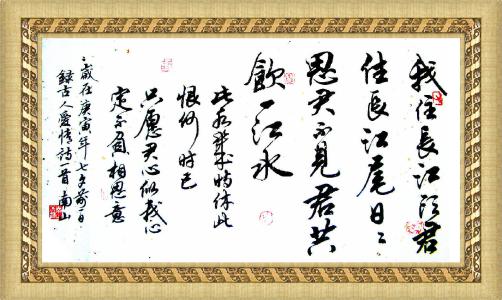 我住長江頭君
住長江尾日々
思君不見君共
飲一江水
此水幾時休此
恨何時已
只愿君心似我心
定不負相思意
歲在庚寅年七夕前一日
録古人愛情詩一首南山